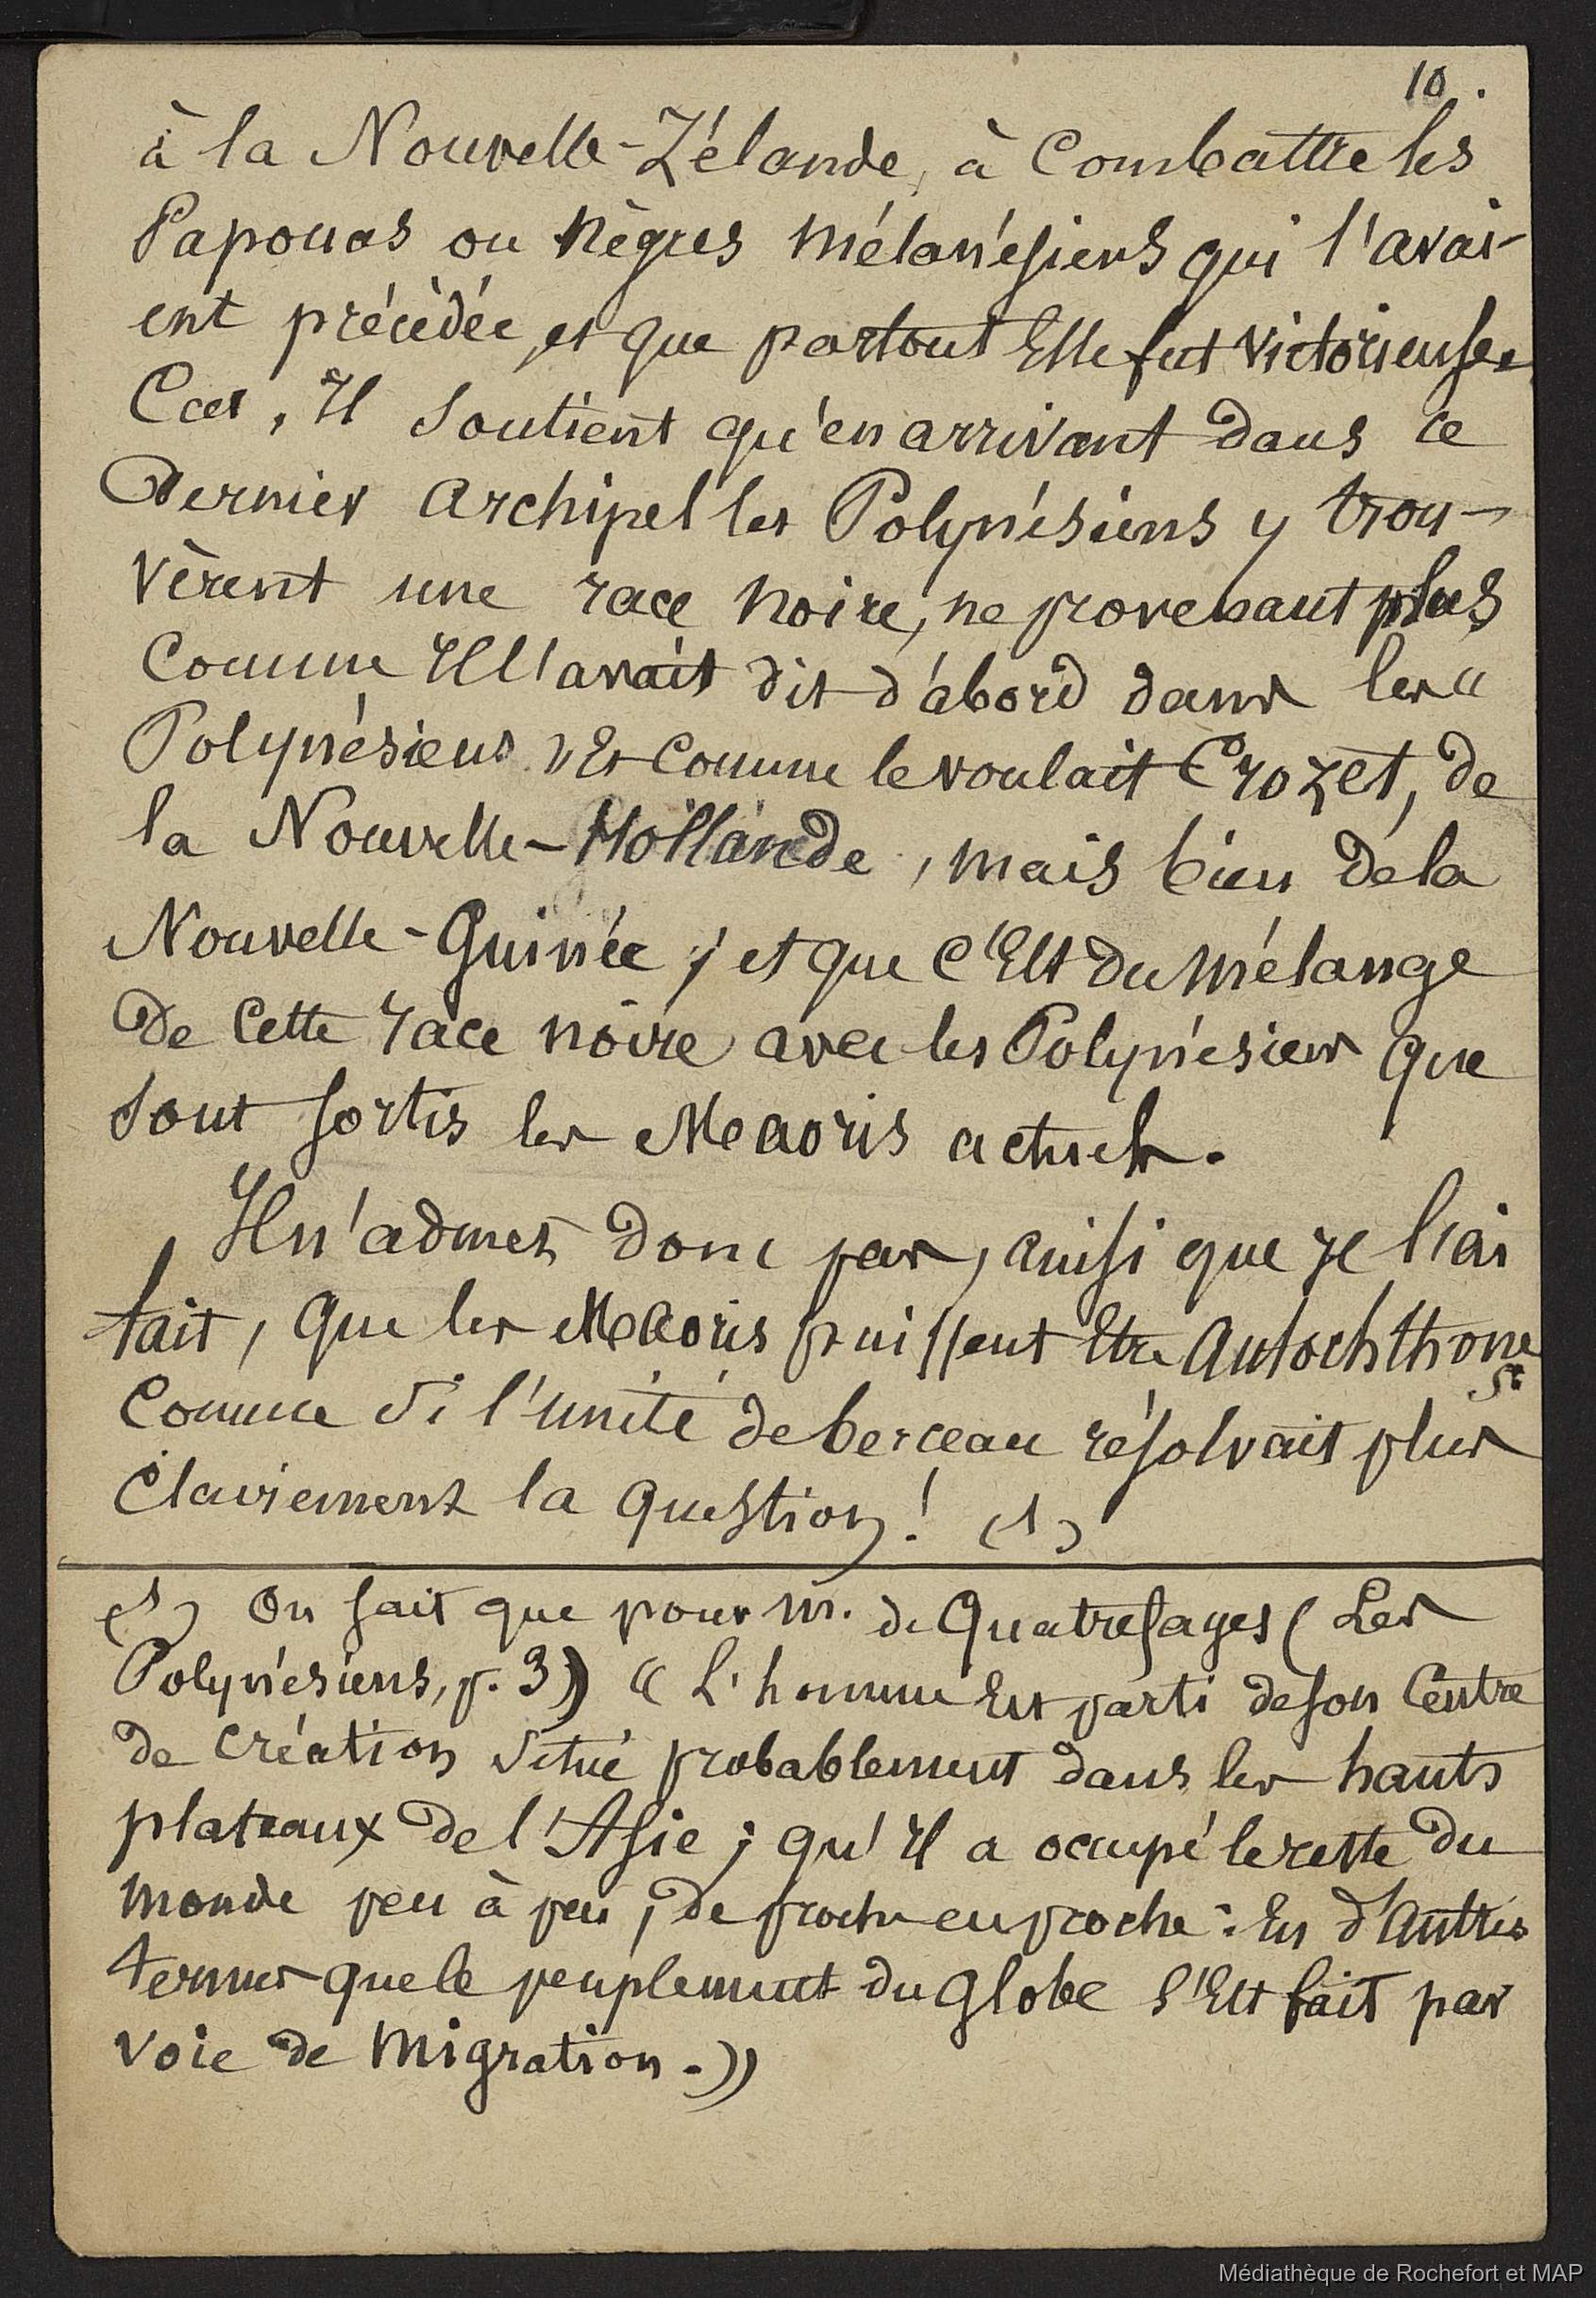 10.
à la Nouvelle-Zélande, à Combattre les
Papouas ou Nègres Mélanésiens qui l'avai-
ent précédée, et que partout Elle fut victorieuse.
Car, Il soutient qu'en arrivant dans ce
Dernier Archipel les Polynésiens y trou-
vèrent une race noire, ne provenant plus
Comme Il l'avait dit d'abord dans les "
Polynésiens ", Et Comme le voulait Crozet, de
la Nouvelle-Hollande, mais bien de la
Nouvelle-Guinée ; et que C'Est du Mélange
De Cette race noire avec les Polynésiens que
sont sortis les Maoris actuels.
Il n'admet donc pas, ainsi que je l'ai
fait, que les Maoris puissent Etre Autochthones
Comme si l'unité de berceau résolvait plus
Clairement la question ! (1)
(1) On sait que pour M. de Quatrefages ( Les
Polynésiens, p. 3) " L'homme Est parti de son Centre
de création situé probablement dans les hauts
plateaux de l'Asie ; qu'Il a occupé le reste du
monde peu à peu, de proche en proche : En d'Autres
termes que le peuplement du Globe s'Est fait par
voie de Migration. "
Médiathèque de Rochefort et MAP